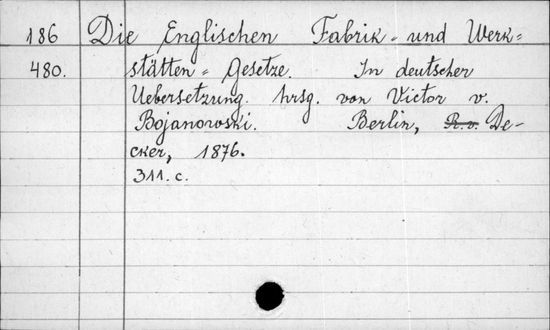 186 Die Englischen Fabrik- und Werk-
480. stätten-Gesetze. In deutscher
Uebersetzung. hrsg. von Victor v.
Bojanowski. Berlin, R. v. De-
cker, 1876.
311. c.